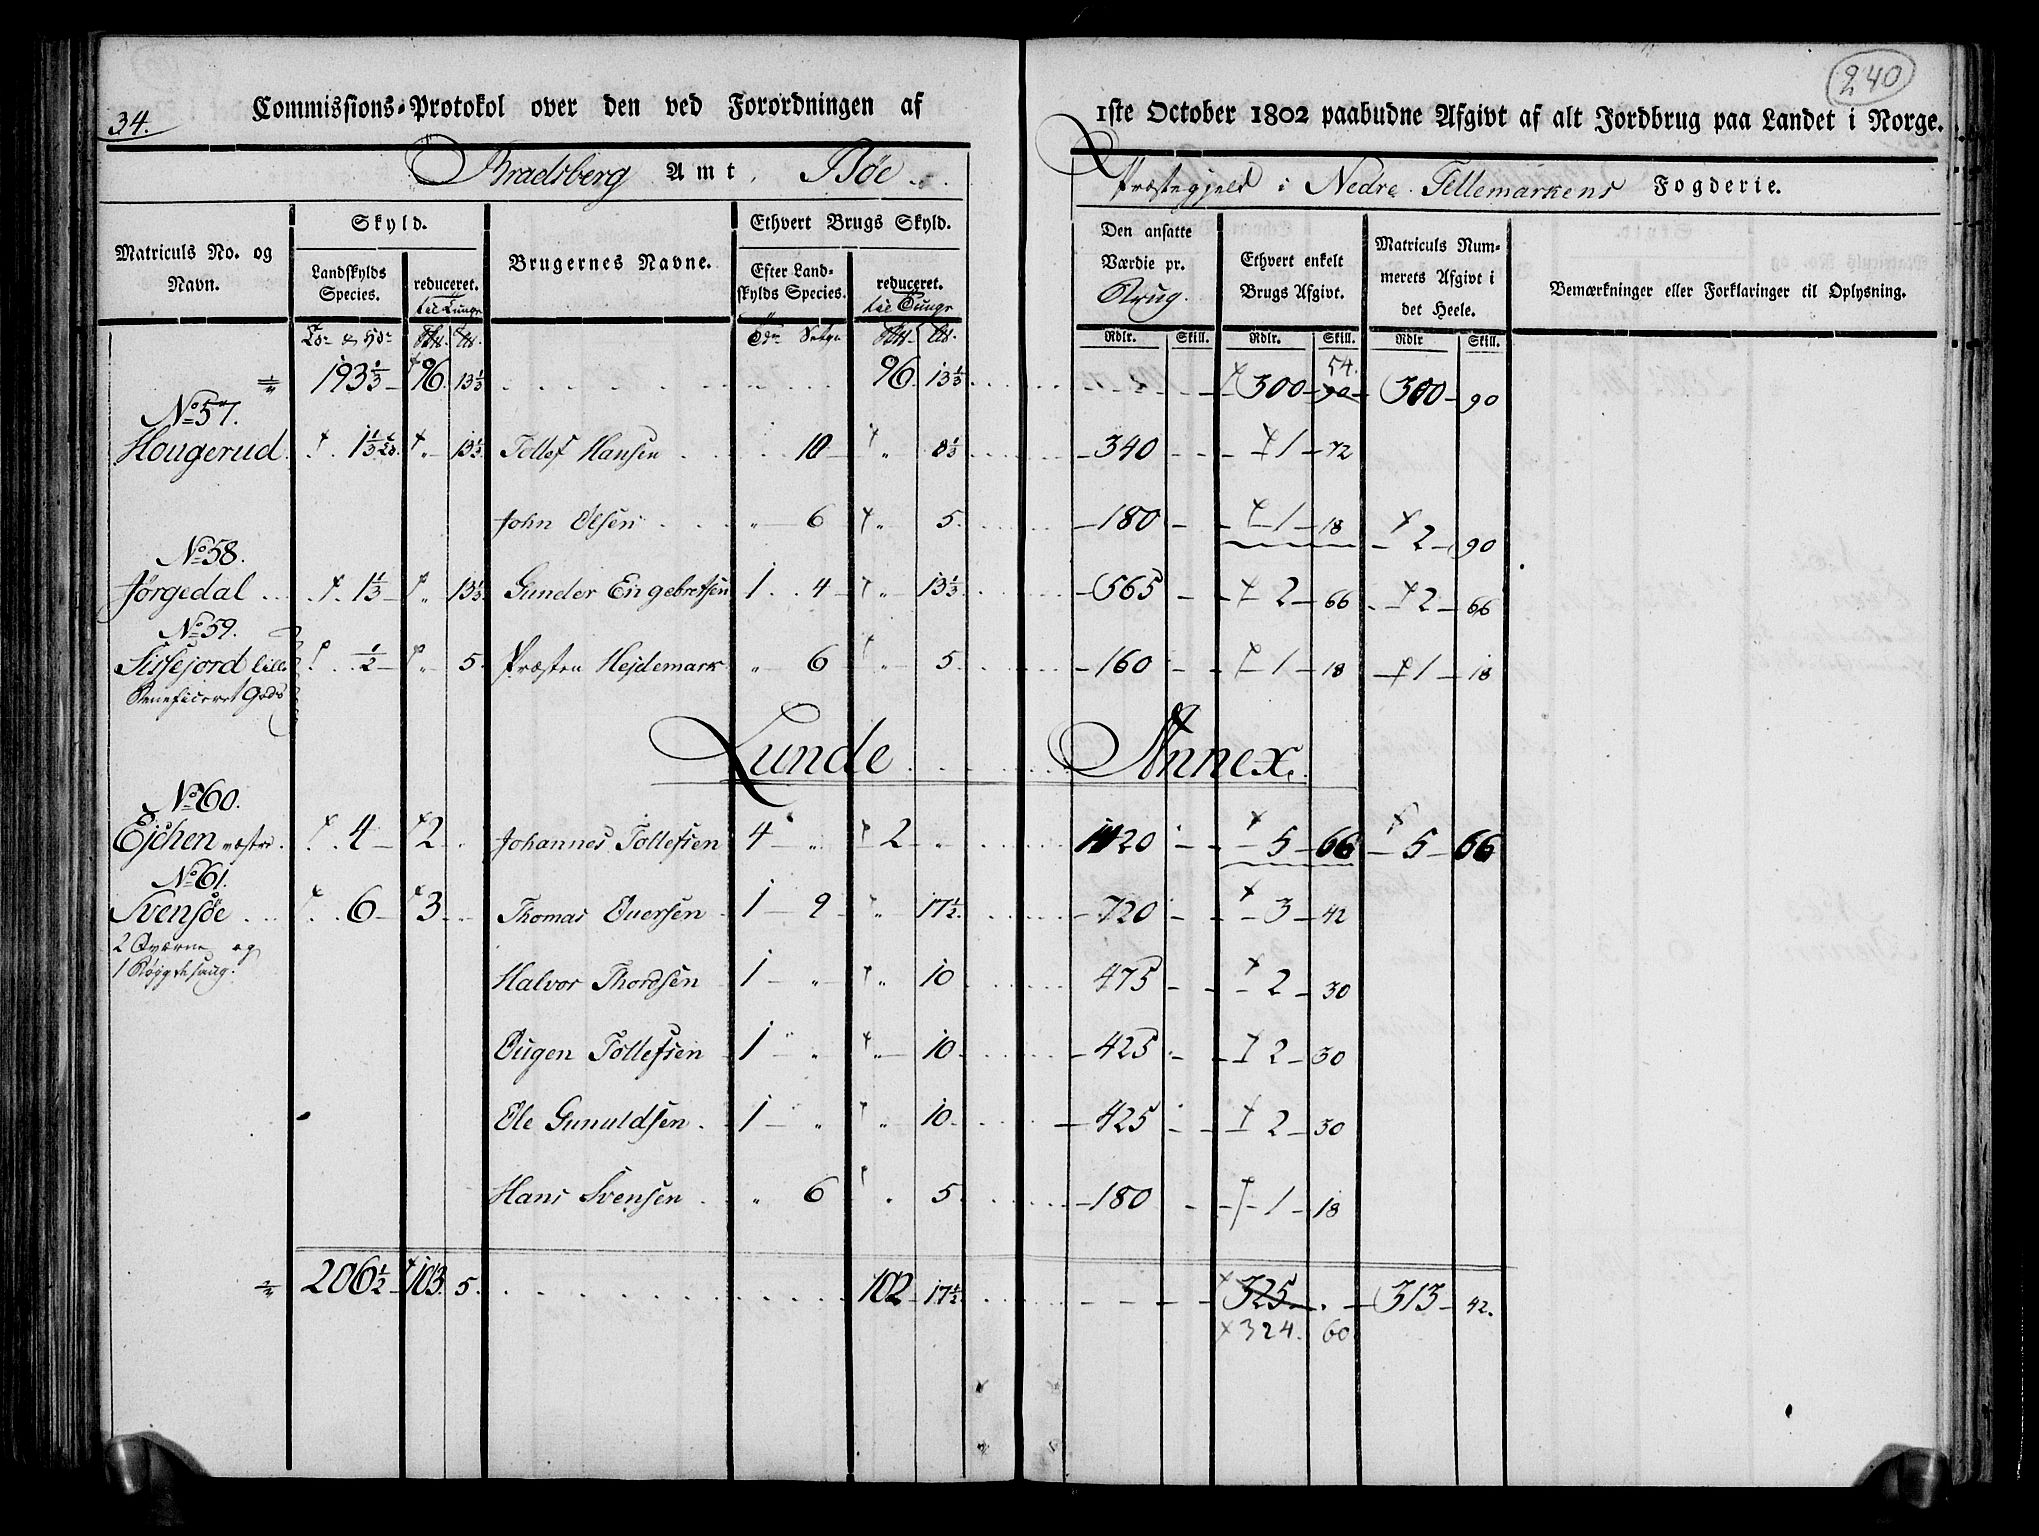 34.
240
Commissions-Protokol over den ved Forordningen af 1ste October 1802 paabudne Afgivt af alt Jordbrug paa Landet i Norge.
Bradsberg Amt, Bøe Præstegjeld i Nedre Tellemarkens Fogderie.
Matriculs No. og Navn.
Skyld.
Landskylds Species.
reduceret.
Brugernes Navne.
Ethvert Brugs Skyld.
Efter Landskylds Species.
reduceret.
Den ansatte Værdie pr. Brug.
Ethvert enkelt Brugs Afgivt.
Matriculs Nummerets Afgivt i det Heele.
Bemærkninger eller Forklaringer til Oplysning.
Rdlr. Skill. Rdlr. Skill. Rdlr Skill.
193 1/3 96 13 1/3 96 13 1/3 300 54. 90 300 90
No 57.
Hougerud 1 1/3 13 1/3 Tellef Hansen 10 8 1/3 340 1 72
John Olsen 6 5 180 1 18 2 90
No 58.
Jørgedal 1 1/3 13 1/3 Gunder Engebretsen 1 4 13 1/3 565 2 66 2 66
No 59.
Sissejord lille 1/2 5 Præsten Hejdemark 6 5 160 1 18 1 18
Beneficeret Gods
Lunde Annex.
No 60.
Ejchen væstre 4 2 Johannes Tollefsen 4 2 1120 5 66 5 66
No 61.
Svensøe 6 3 Thomas Eversen 1 9 17 1/2 720 3 42
2 Qværne og
1 Bøygdesaug.
Halvor Thordsen 1 10 475 2 30
Ougen Tollefsen 1 10 425 2 30
Ole Gunuldsen 1 10 425 2 30
Hans Svensen 6 5 180 1 18
206 1/2 103 5 102 17 1/2 325 313 42.
324. 60